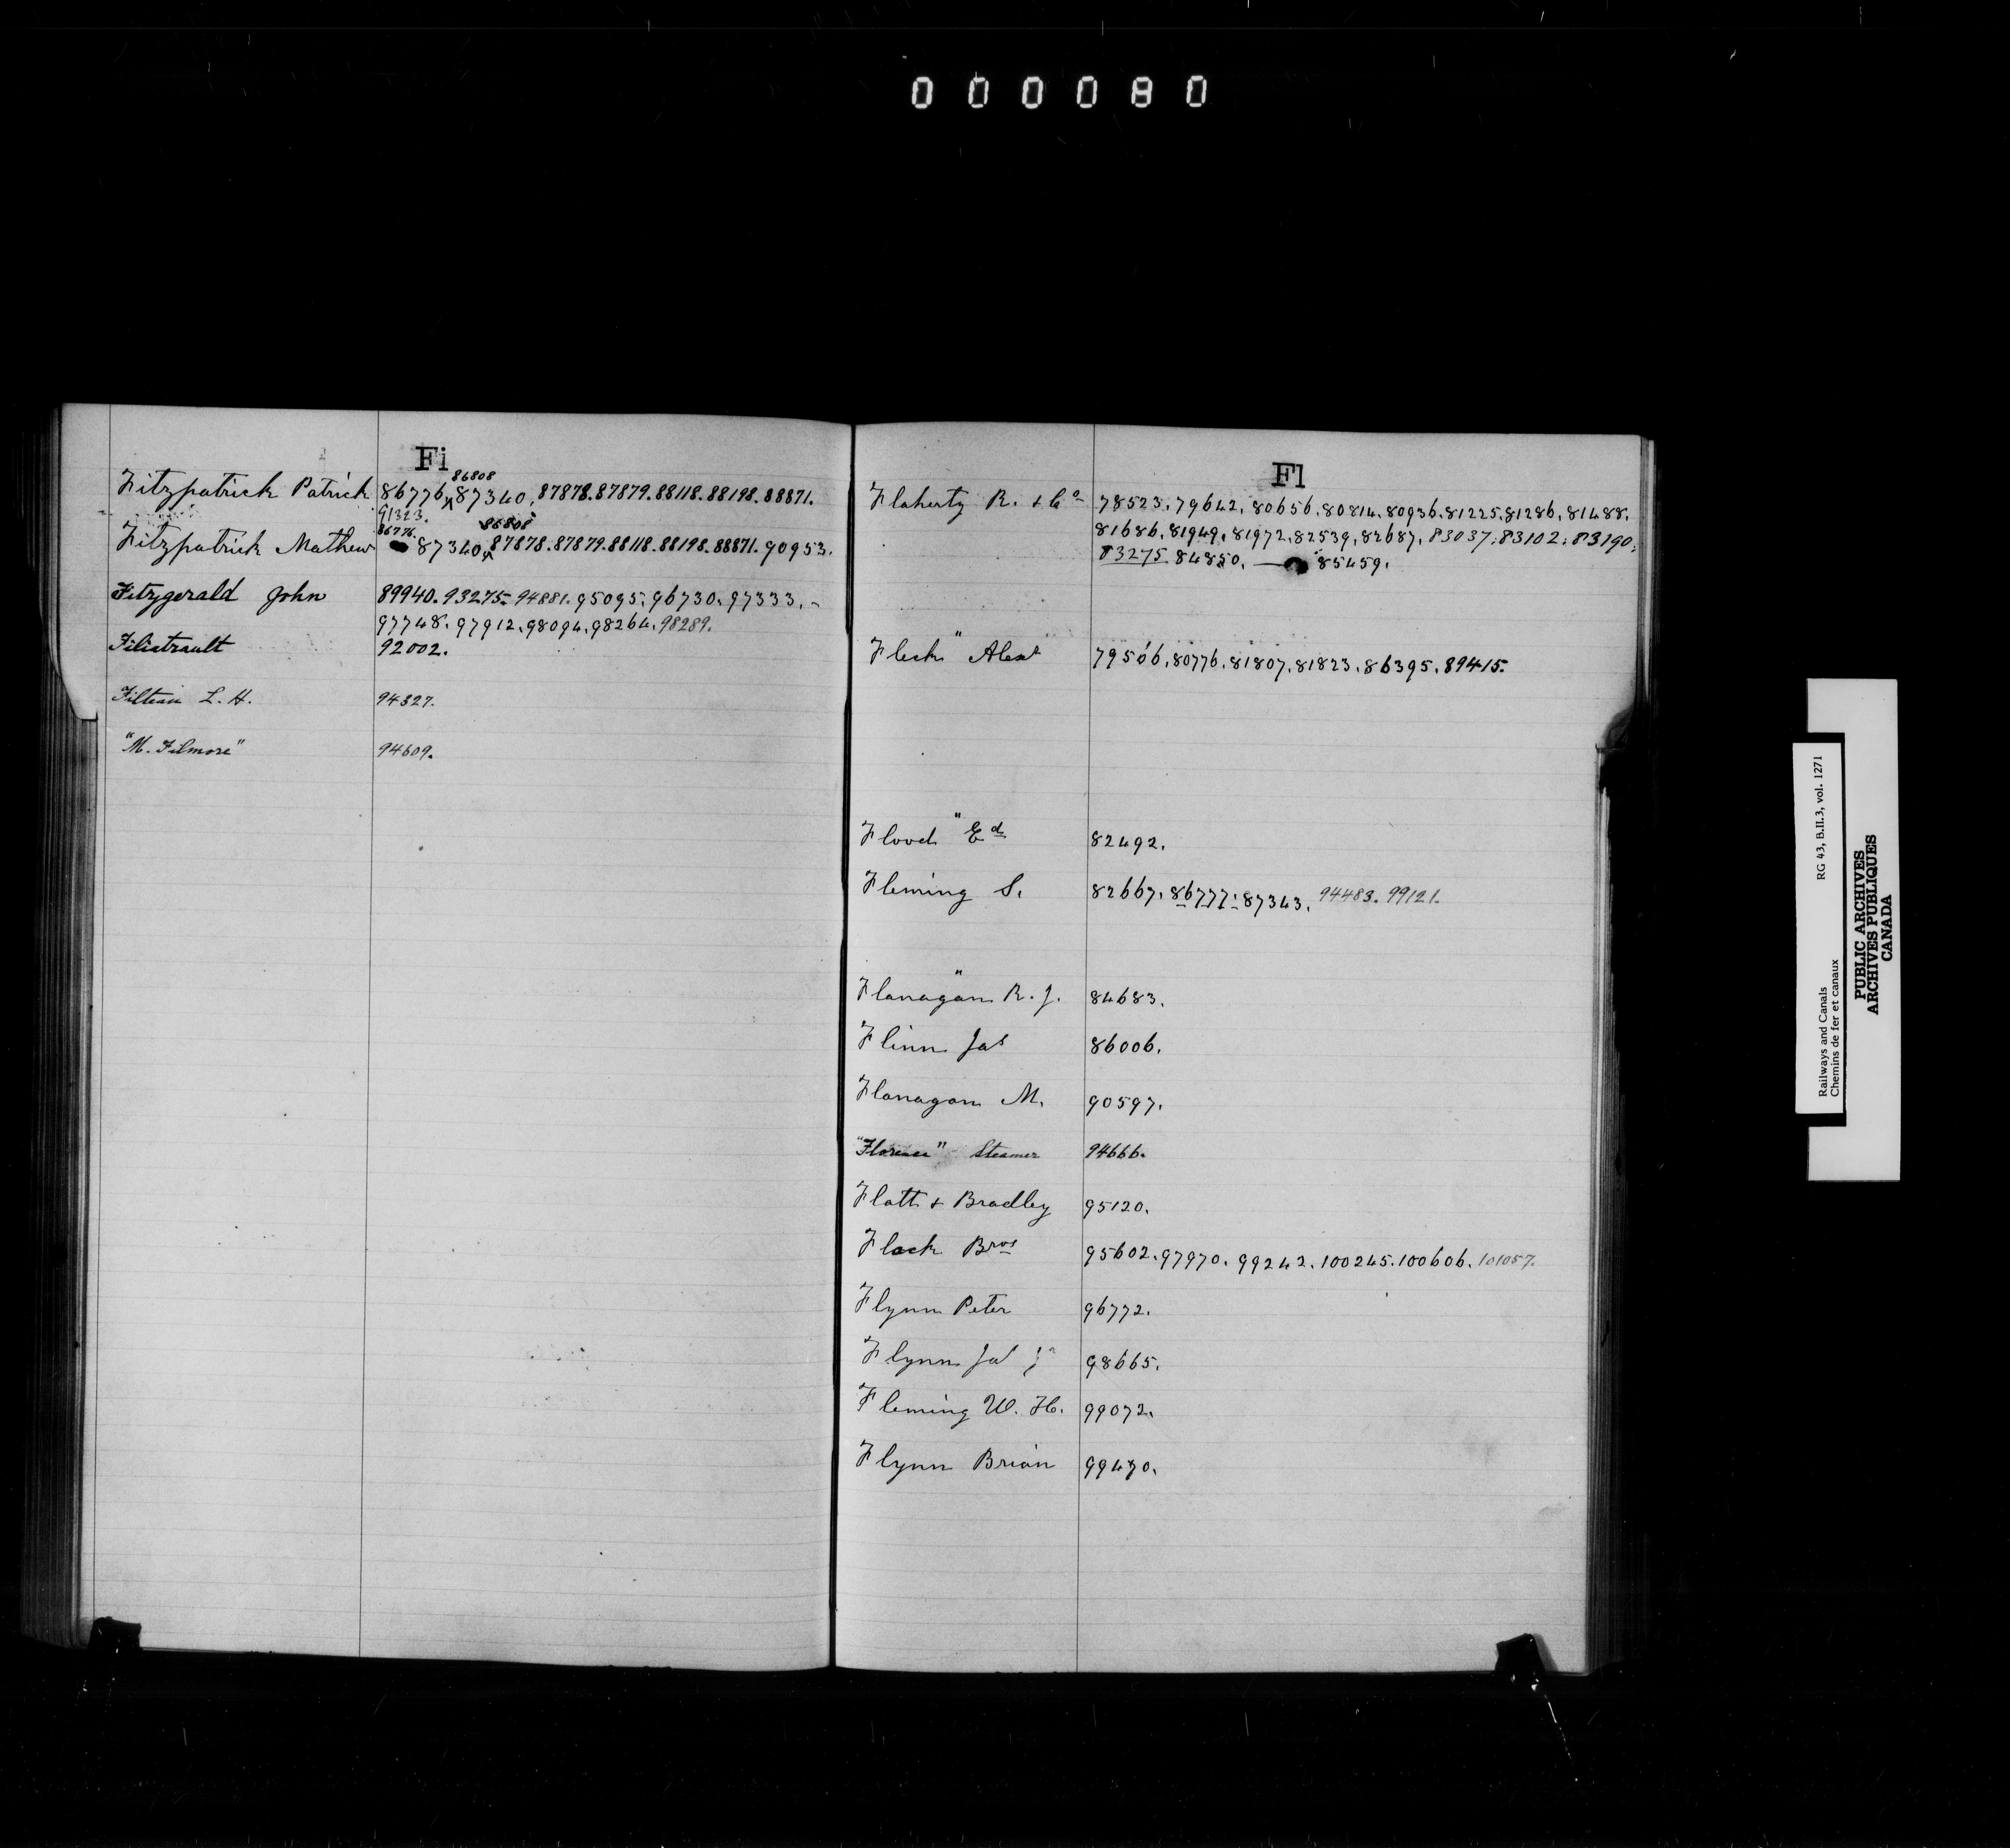 000080
Fi
86808
Fitzpatrick Patrick 86776, 87340, 87878. 87879. 88118. 88198. 88871.
91323.
86776. 86808
Fitzpatrick Mathew 87340, 87878. 87879. 88118. 88198. 88871. 90953.
Fitzgerald John 89940. 93275. 94881. 95095. 96730. 97333.
97748. 97912. 98094. 98264. 98289.
Filiatrault 92002.
Filteau L. H. 94327.
"M. Filmore" 94609.
Fl
Flaherty R. & Co 78523. 79642. 80656. 80814. 80936. 81225. 81286. 81488.
81686. 81949. 81972. 82539. 82687. 83037. 83102. 83190.
83275. 84850. 85459.
Fleck " Alexr 79506. 80776. 81807. 81823. 86395. 89415.
Flood " Ed 82492.
Fleming S. 82667. 86777. 87343. 94483. 99121.
"
Flanagan R. J. 84683.
Flinn Jas 86006.
Flanagan M. 90597.
"Florence" Steamer 94666.
Flatt & Bradley 95120.
Flack Bros 95602. 97970. 99242. 100245. 100606. 101057.
Flynn Peter 96772.
Flynn Jas Jr 98665.
Fleming W. H. 99072.
Flynn Brian 99470.
Railways and Canals RG 43, B.II.3, vol. 1271
Chemins de fer et canaux
PUBLIC ARCHIVES
ARCHIVES PUBLIQUES
CANADA